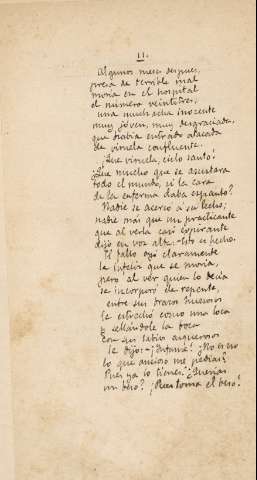 11.
Algunos meses despues,
presa de terrible mal
moria en el hospital
el número veintitres,
una muchacha inocente
muy jóven, muy desgraciada,
que habia entrado atacada
de viruela confluente.
¡Que viruela, cielo santo!
¿Que mucho que se asustara
todo el mundo, si la cara
de la enferma daba espanto?
Nadie se acercó á su lecho;
nadie más que un practicante
que al verla casi espirante
dijo en voz alta.-Esto es hecho.
El fallo oyó claramente
la infeliz que se moria,
pero al ver quien lo decia
se incorporó de repente,
entre sus brazos huesosos
le estrechó como una loca
y sellándole la boca
con sus labios asquerosos
le dijo:-¡Infame! ¿No es eso
lo que ansioso me pedias?
Pues ya lo tienes. ¿Querias
un beso? ¡Pues toma el beso!